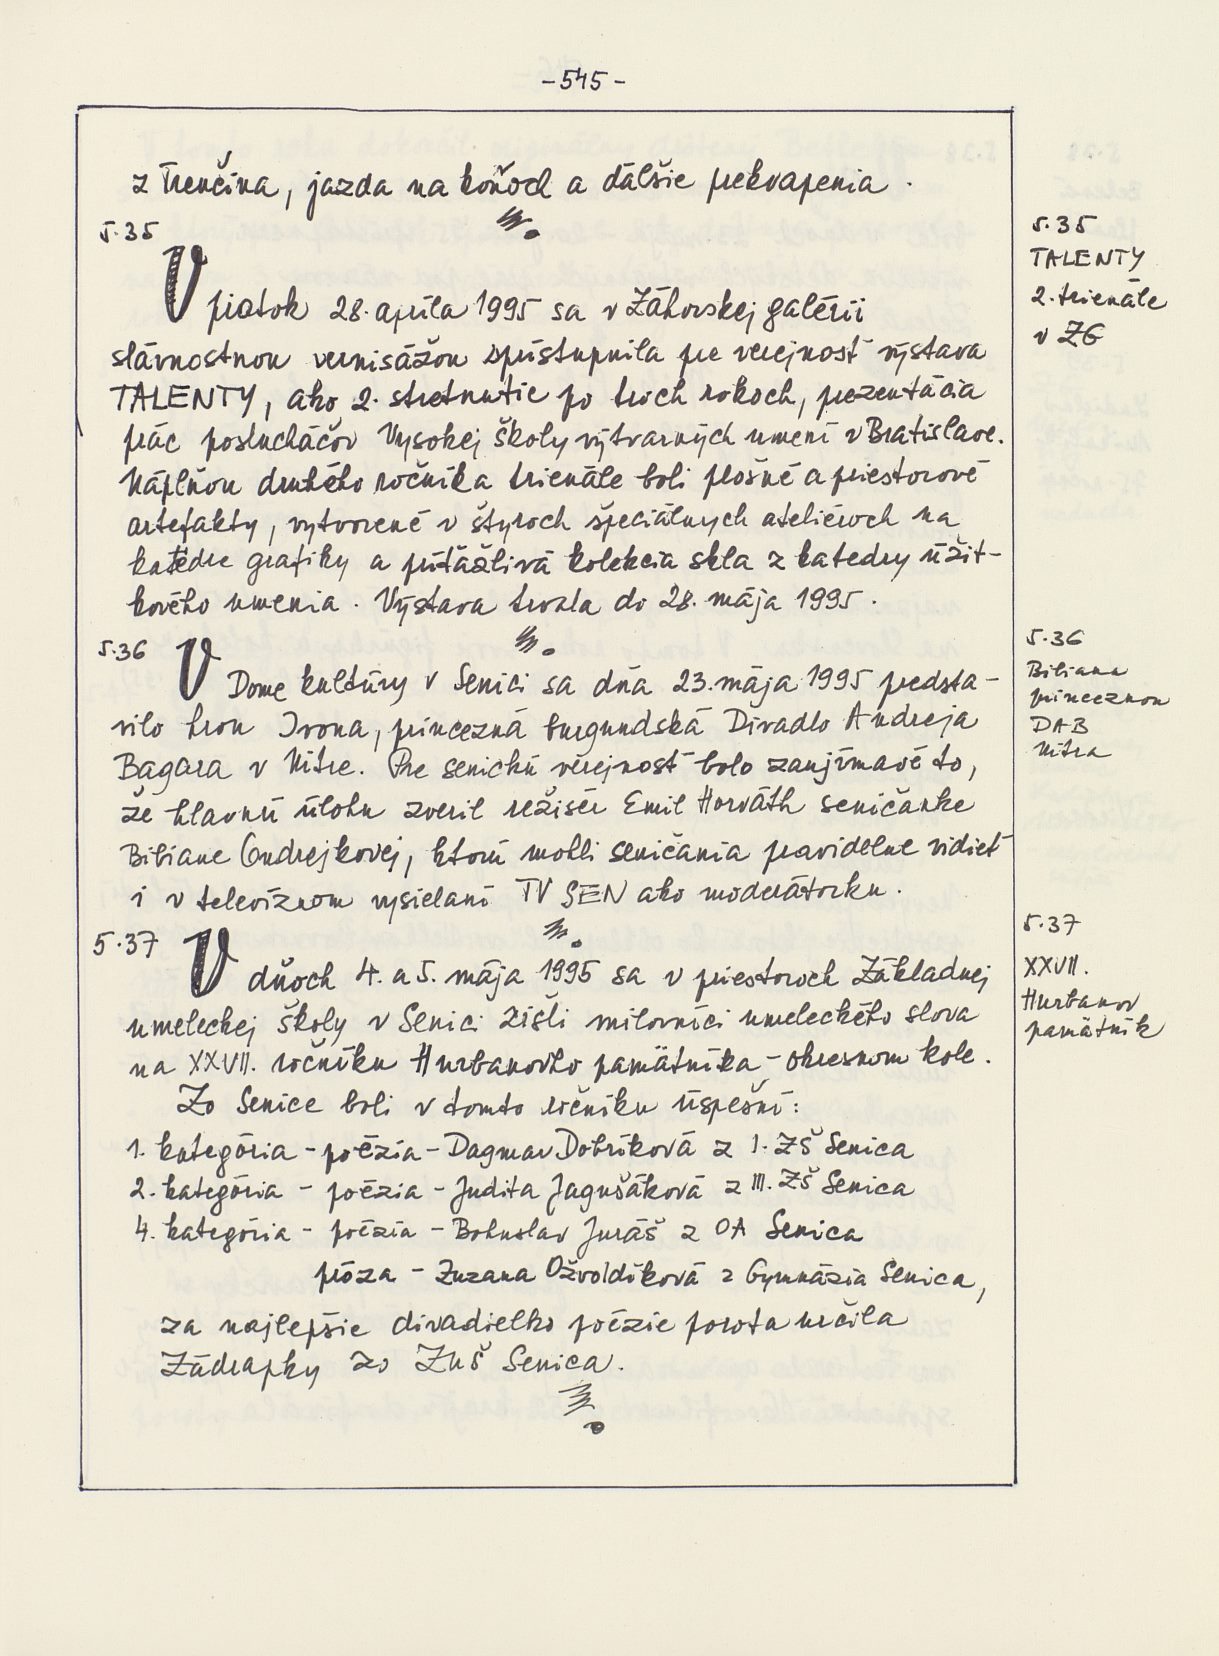 -545-
z Trenčína, jazda na koňoch a ďalšie prekvapenia.
5.35
V piatok 28. apríla 1995 sa v Záhorskej galérii
slávnostnou vernisážou sprístupnila pre verejnosť výstava
TALENTY, ako 2. stretnutie po troch rokoch, prezentácia
prác poslucháčov Vysokej školy výtvarných umení v Bratislave.
Náplňou druhého ročníka trienále boli plošné a priestorové
artefakty, vytvorené v štyroch špeciálnych ateliéroch na
katedre grafiky a príťažlivá kolekcia skla z katedry úžit-
kového umenia. Výstava trvala do 28. mája 1995.
5.36
V Dome kultúry v Senici sa dňa 23. mája 1995 predsta-
vilo hrou Ivona, princezná burgundská Divadlo Andreja
Bagara v Nitre. Pre senickú verejnosť bolo zaujímavé to,
že hlavnú úlohu zveril režisér Emil Horváth seničanke
Bibiane Ondrejkovej, ktorú mohli seničania pravidelne vidieť
i v televíznom vysielaní TV SEN ako moderátorku.
5.37
V dňoch 4. a 5. mája 1995 sa v priestoroch Základnej
umeleckej školy v Senici zišli milovníci umeleckého slova
na XXVII. ročníku Hurbanovho pamätníka - okresnom kole.
Zo Senice boli v tomto ročníku úspešní:
1. kategória - poézia - Dagmar Dobríková z I. ZŠ Senica
2. kategória - poézia - Judita Jagušáková z III. ZŠ Senica
4. kategória - poézia - Bohuslav Juráš z OA Senica
próza - Zuzana Ožvoldíková z Gymnázia Senica,
za najlepšie divadielko poézie porota určila
Zádrapky zo ZUŠ Senica.
5.35
TALENTY
2. trienále
v ZG
5.36
Bibiana
princeznou
DAB
Nitra
5.37
XXVII.
Hurbanov
pamätník